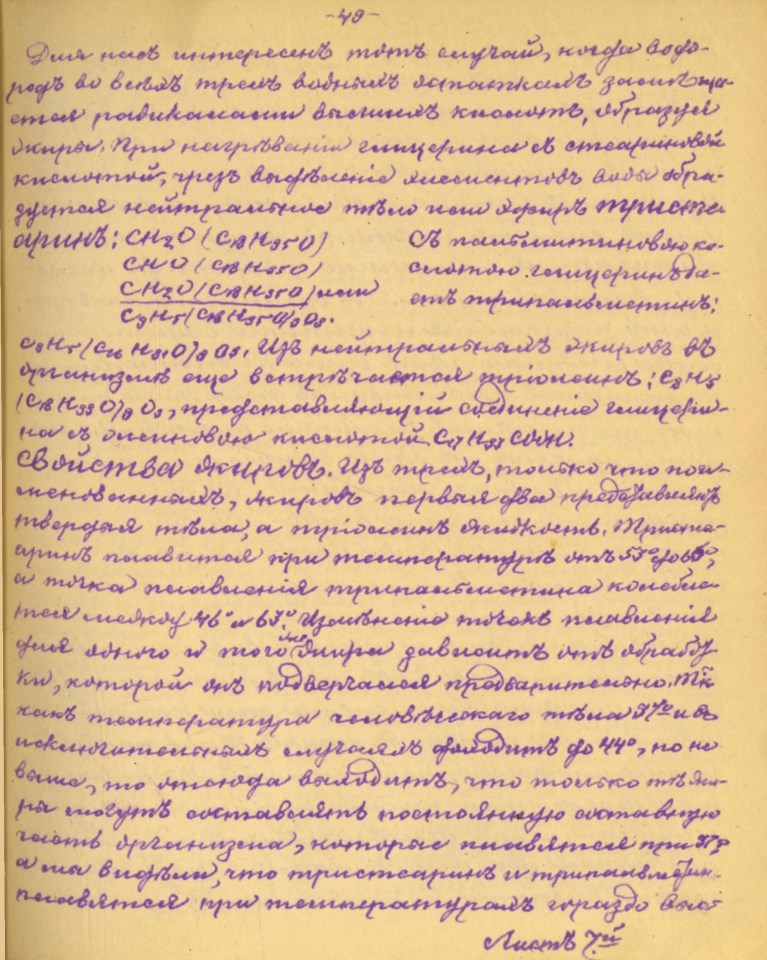 -49-
Для насъ интересенъ тотъ случай, когда водо-
родъ во всѣхъ трехъ водныхъ остаткахъ замѣща-
ется радикалами высшихъ кислотъ, образуя
жиры. При нагрѣваніи глицерина съ стеариновой
кислотой, чрезъ выдѣленіе элементовъ воды обра-
зуется нейтральное тѣло или эфиръ тристе-
аринъ: CH2O(C18H35O) Съ пальмитиновою ки-
CHO(C18H35O) слотою глицеринъ да-
CH2O(C18H35O) или етъ трипальметинъ:
C3H5(C18H35O)3O3.
C3H5(C16H31O)3O3. Изъ нейтральныхъ жировъ въ
организмѣ еще встрѣчается тріолеинъ: C3H5
(C18H33O)3O3, представляющій соединеніе глицери-
на съ олеиновою кислотой C17H33COOH.
Свойства жировъ. Изъ трехъ, только что пои-
менованныхъ, жировъ первыя два представляютъ
твердыя тѣла, а тріолеинъ жидкость. Тристе-
аринъ плавится при температурѣ отъ 53° до 66°,
а точка плавленія трипальметина колебле-
тся между 46° и 63°. Измѣненіе точекъ плавленія
для одного и того же жира зависитъ отъ обработ-
ки, которой онъ подвергался предварительно. Такъ
какъ температура человѣческаго тѣла 37° и въ
исключительныхъ случаяхъ доходитъ до 44°, но не
выше, то отсюда выходитъ, что только тѣ жи-
ры могутъ составлять постоянную составную
часть организма, которые плавятся при 37°
а мы видѣли, что тристеаринъ и трипальметин.
плавятся при температурахъ гораздо выс-
Листъ 7й